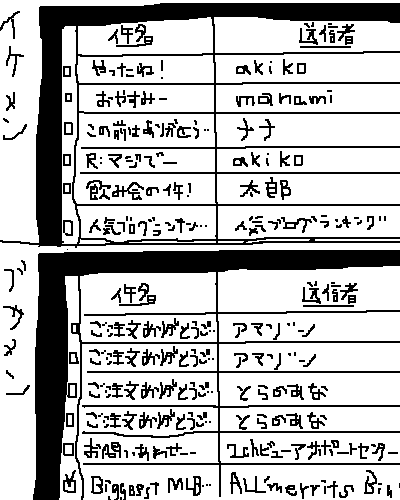 イケメン
件名 送信者
やったね! akiko
おやすみー manami
この前はありがとう… ナナ
R:マジでー akiko
飲み会の件! 太郎
人気ブログランキン… 人気ブログランキング
ブサメン
件名 送信者
ご注文ありがとうご… アマゾン
ご注文ありがとうご… アマゾン
ご注文ありがとうご… とらのあな
ご注文ありがとうご… とらのあな
お問い合わせー 2chビューアサポートセンター
Biggest MLB…